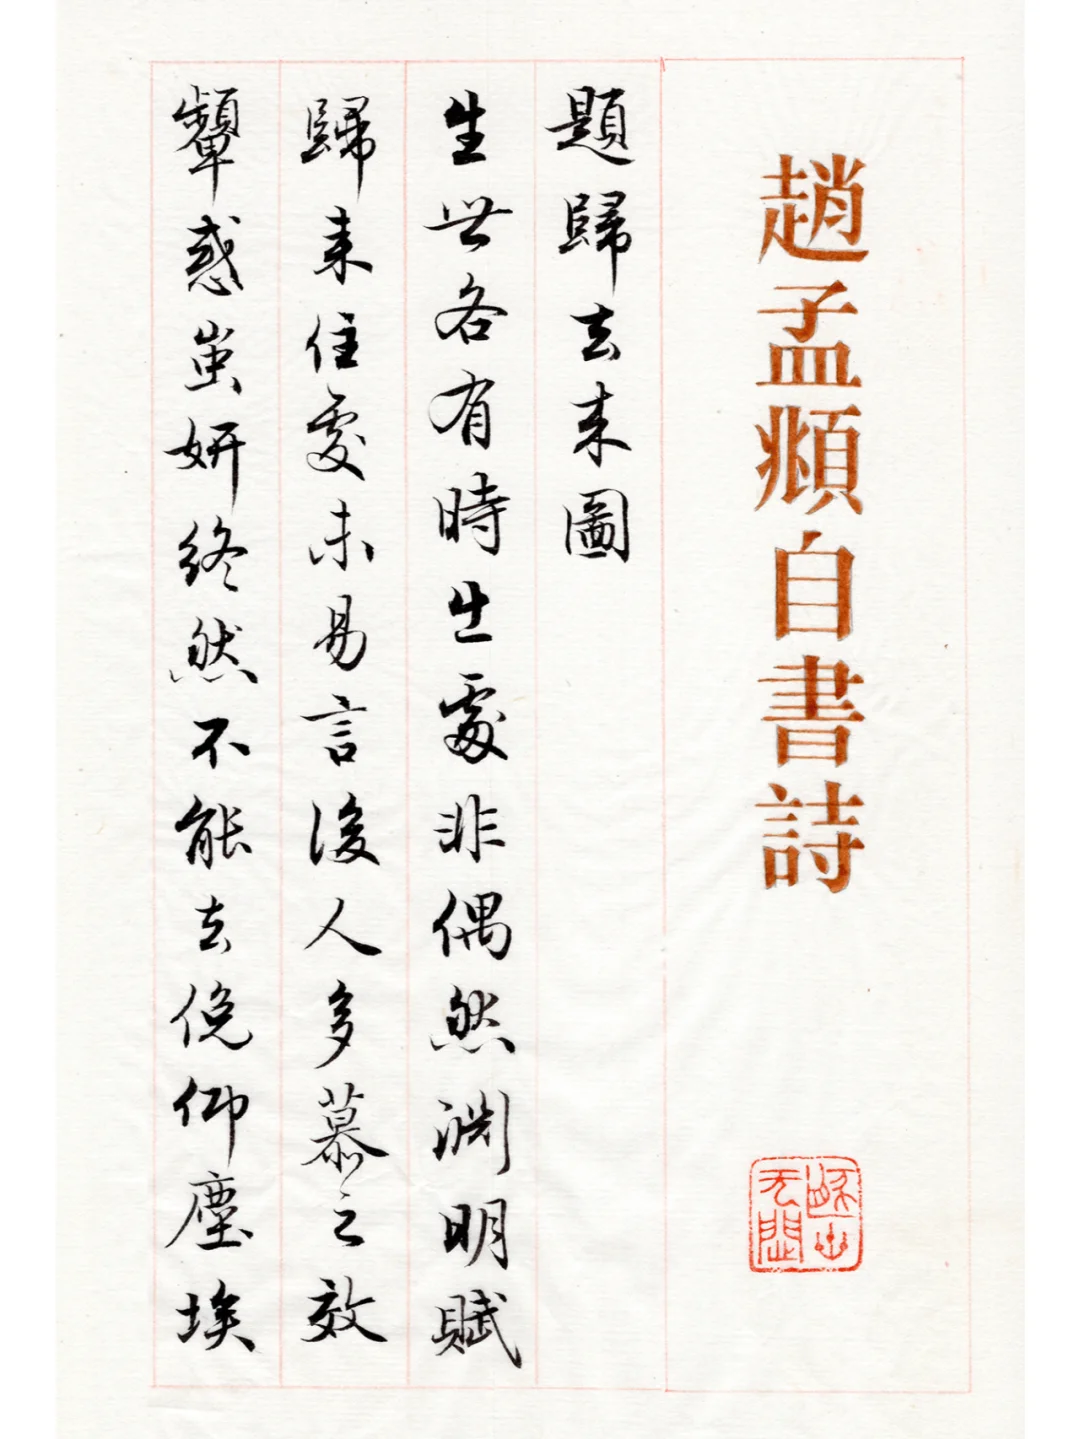 趙孟頫自書詩
題歸去来圖
生世各有時出處非偶然淵明賦
歸来佳處未易言後人多慕之效
顰惑蚩妍終然不能去俛仰塵埃